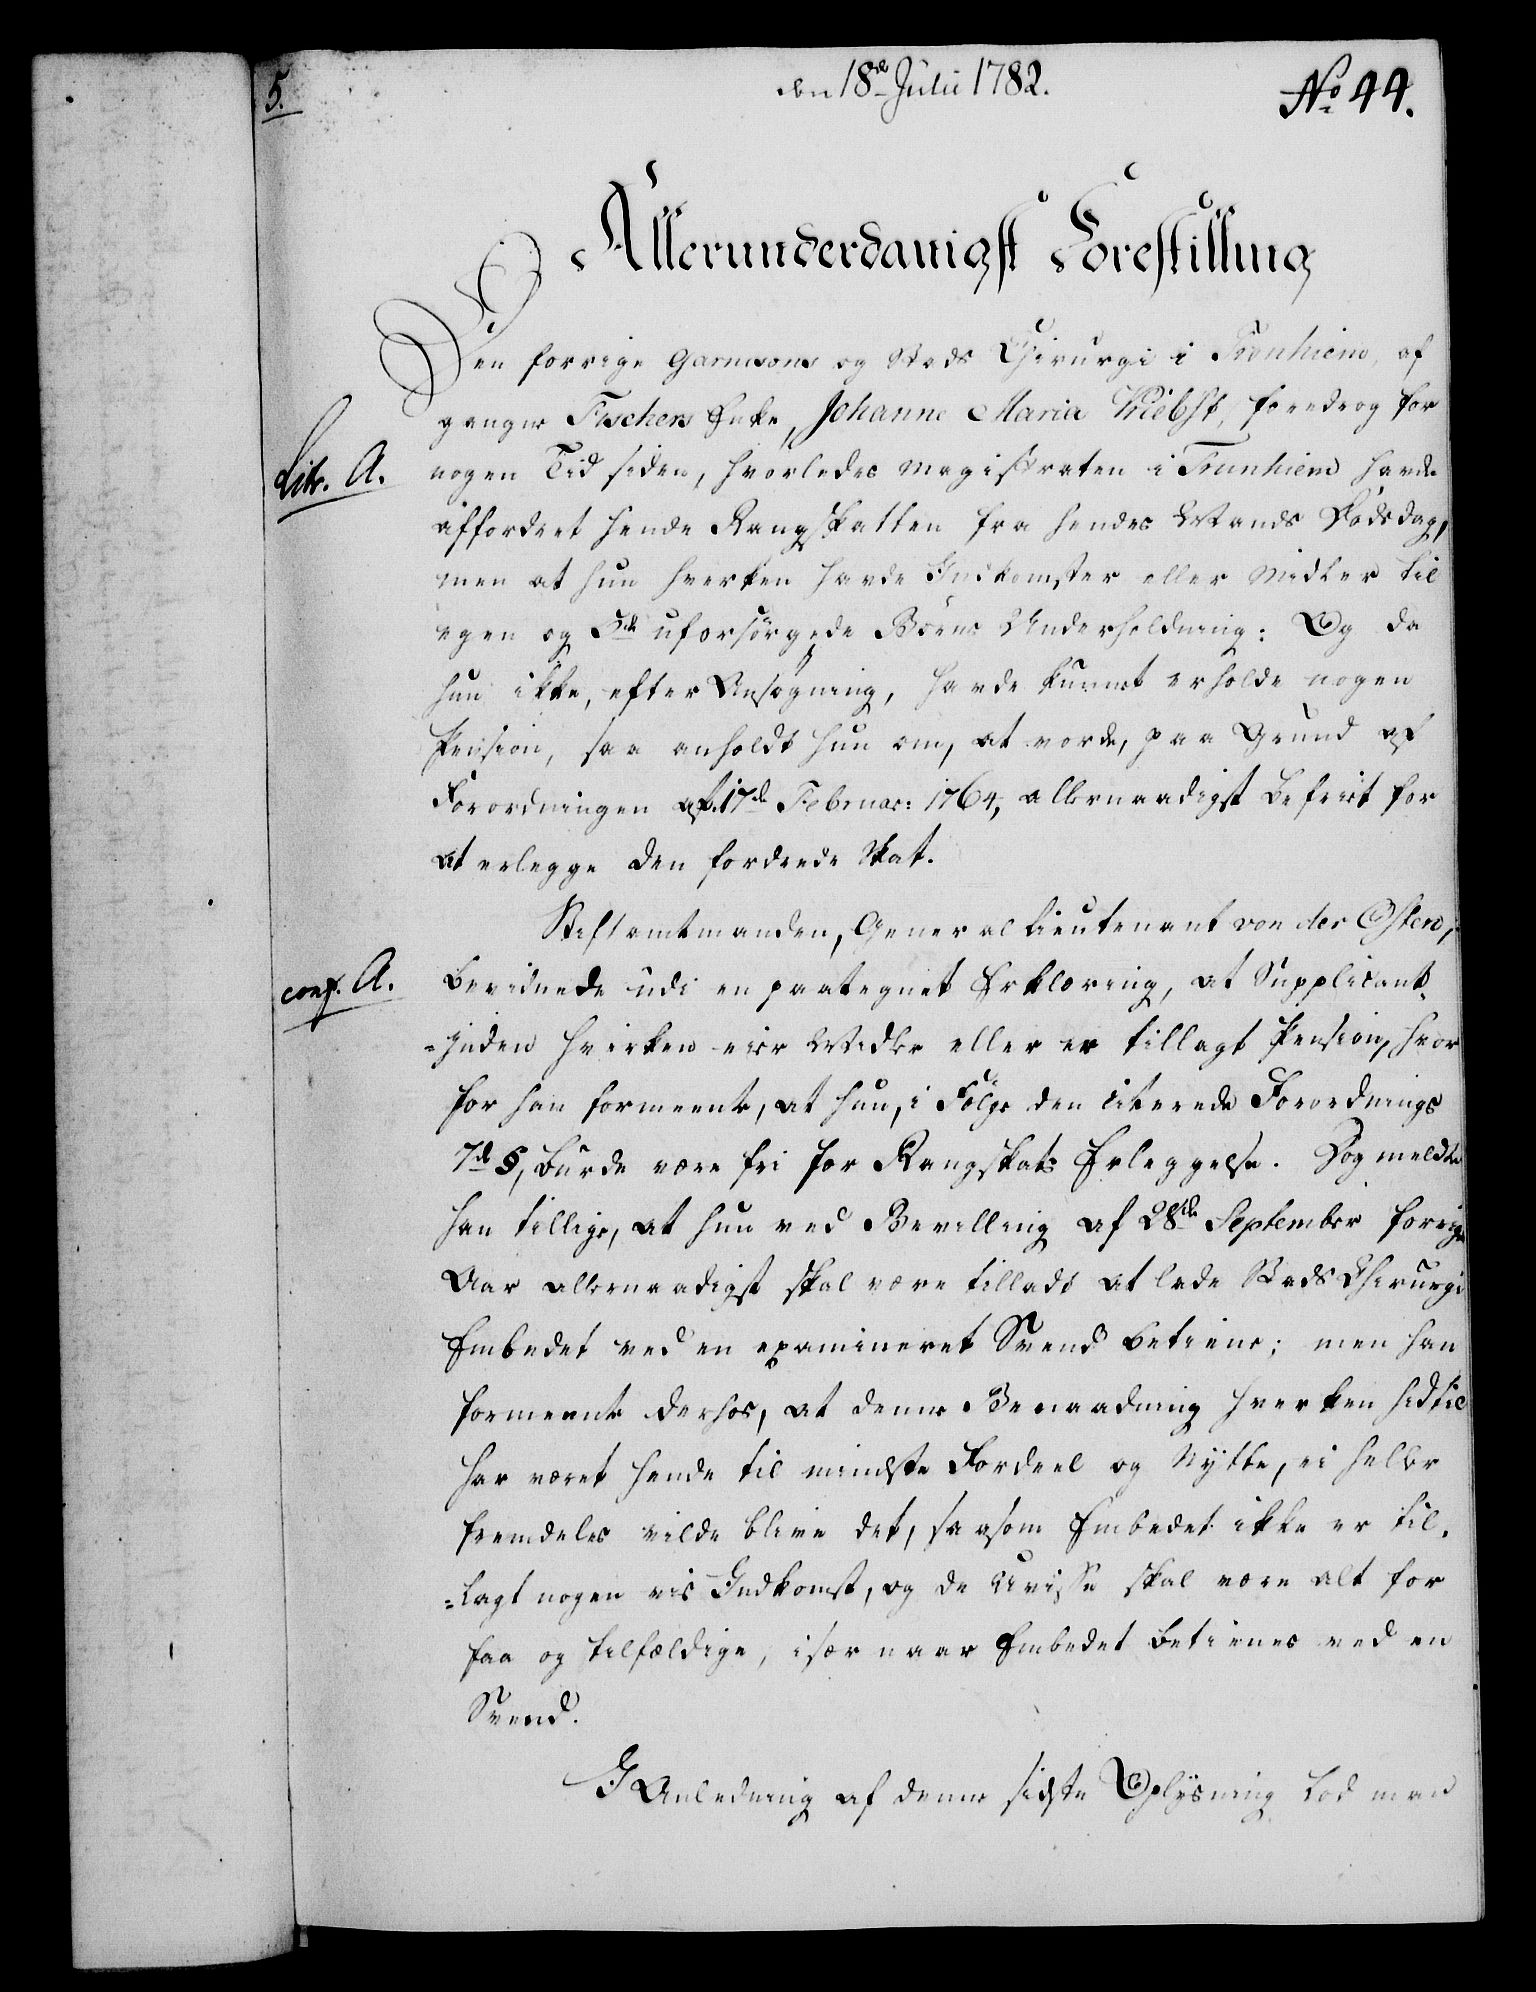 5.
den 18de Julii 1782.
No 44.
Allerunderdanigst Forestilling
Den forrige Garnisons og Stads Chirurgi i Tronhiem af
ganger Fischers Enke, Johanne Maria Kiöbst, foredrog for
Litr. A.
nogen Tid siden, hvorledes Magistraten i Trunhiem havde
affordret hende Rangskatten fra hendes Mands Dødsdag,
men at hun hverken havde Indkomster eller Midler til
egen og 3de uforsørgede Børns Underholdning: Og da
hun ikke, efter Ansøgning, havde kunnet erholde nogen
Pension, saa anholdt hun om, at vorde, paa Grund af
Forordningen af 17de Februar: 1764, allernaadigst befriet for
at erlegge den fordrede Skat.
Stiftamtmanden, General Lieutenant von der Osten,
conf. A.
bevidnede udi en paategnet Erklæring, at Supplicant-
=inden hverken eier Midler eller er tillagt Pension, hvor
for han formeente, at hun, i Følge den citerede Forordnings
7de §, burde være fri for Rangskats Erleggelse. Dog meldte
han tillige, at hun ved Bevilling af 28de September forrige
Aar allernaadigst skal være tilladt at lade Stads Chirurgi
Embedet ved en examineret Svend betiene; men han
formeente derhos, at denne Benaadning hverken hidtil
har været hende til mindste Fordeel og Nytte, ei heller
fremdeles vilde blive det, saasom Embedet ikke er til-
=lagt nogen vis Indkomst, og de Uvisse skal være alt for
faa og tilfældige, især naar Embedet betienes ved en
Svend.
I Anledning af denne sidste Oplysning lod man